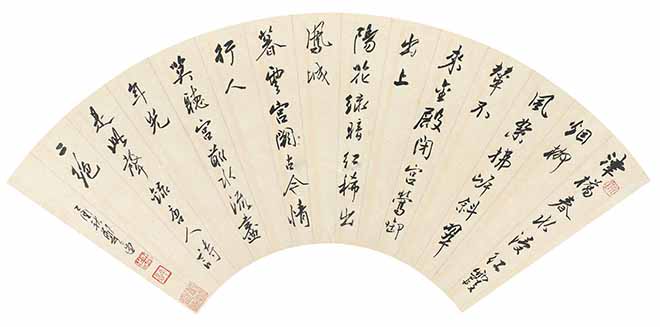 津橋春水浸紅霞
烟柳
風絲拂岸斜翠
輦不
來金殿閉宮鶯啣
出上
陽花綠暗紅稀出
鳳城
暮雲宮闕古今情
行人
莫聽宮前水流盡
年光
是此聲 錄唐人詩
二絕